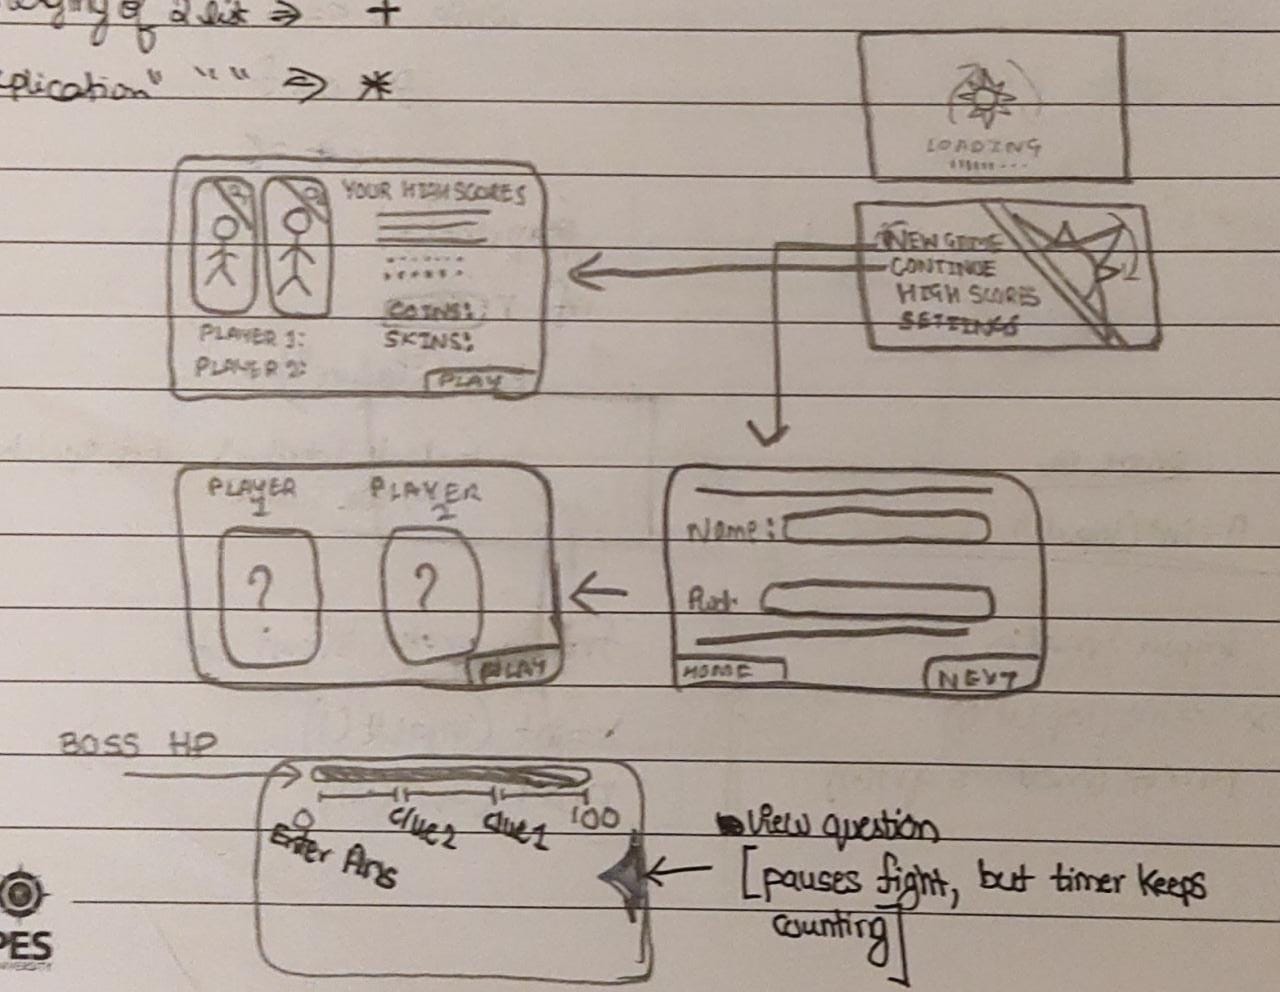 of 2 list ⇒ +
plication" " " ⇒ *
LOADING
NEW GAME
CONTINUE
HIGH SCORES
SETTINGS
YOUR HIGHSCORES
COINS:
SKINS:
PLAYER 1:
PLAYER 2:
PLAY
PLAYER 1
PLAYER 2
?
?
PLAY
Name:
HOME
NEXT
BOSS HP
0
clue2
clue1
100
Enter Ans
View question
[pauses fight, but timer keeps
counting]
PES
UNIVERSITY